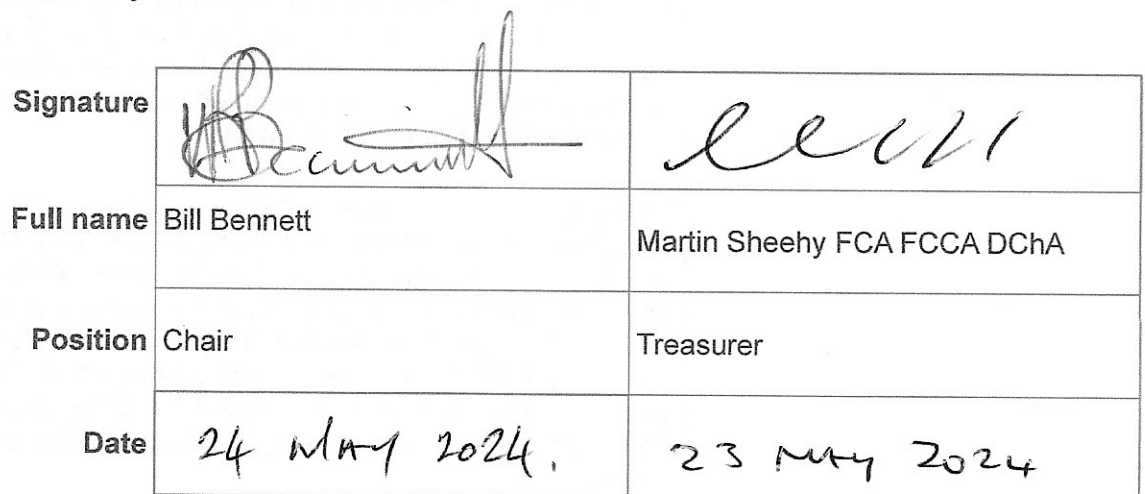 Signature
Full name Bill Bennett Martin Sheehy FCA FCCA DChA
Position Chair Treasurer
Date 24 MAY 2024. 23 MAY 2024